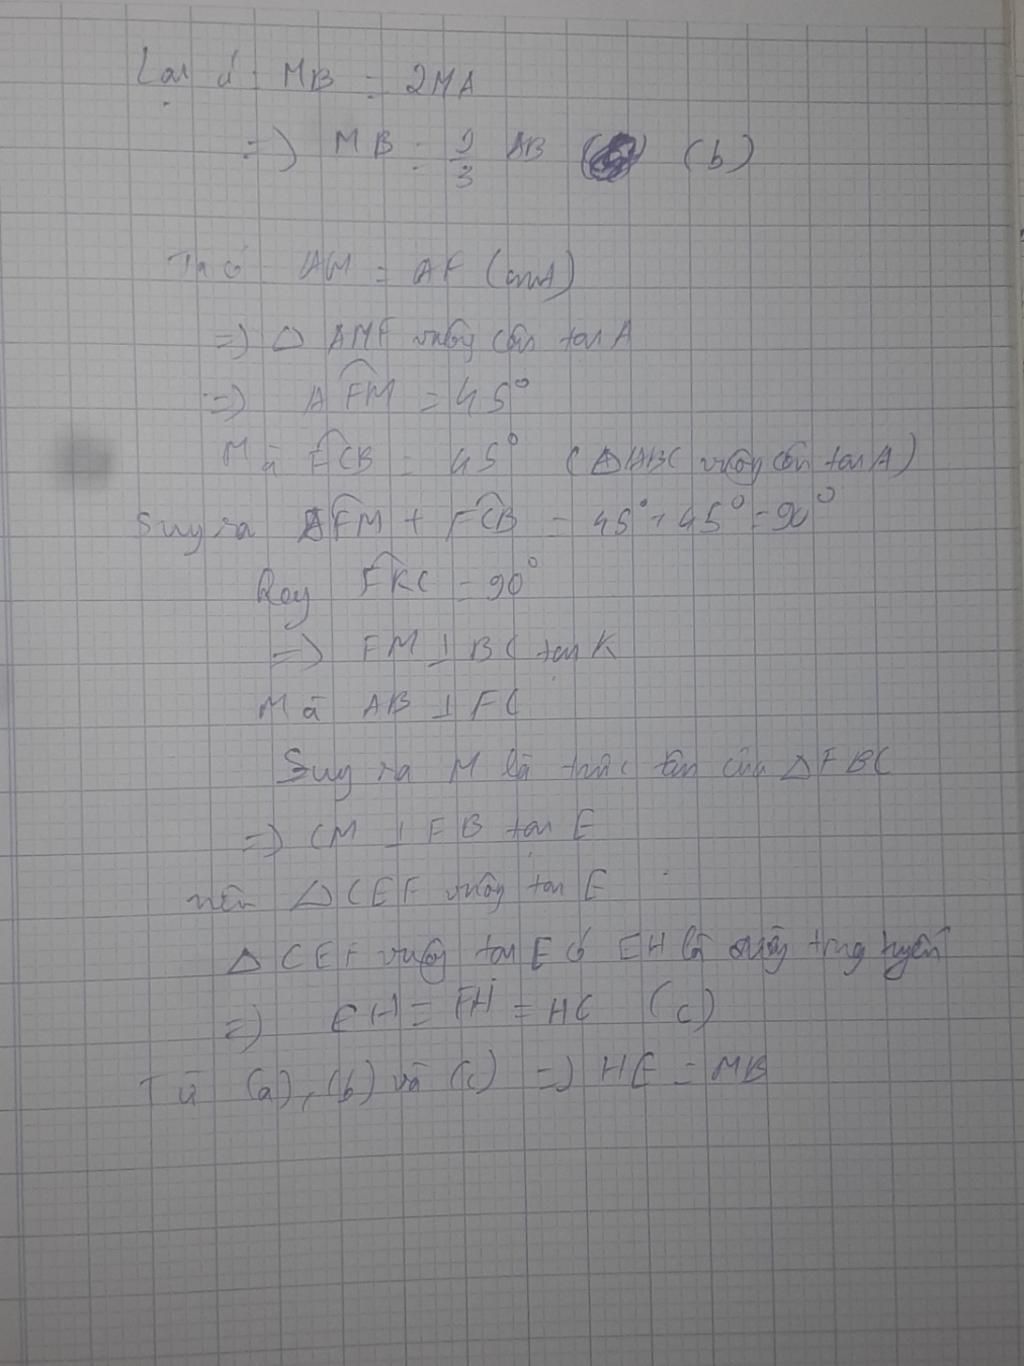 Lại có MB = 2MA
=> MB = 2/3 AB (b)
Ta có AM = AF (cmt)
=> △ AMF vuông cân tại A
=> AFM = 45°
Mà FCB = 45° (△ABC vuông cân tại A)
Suy ra AFM + FCB = 45° + 45° = 90°
Hay FKC = 90°
=> FM ⊥ BC tại K
Mà AB ⊥ FC
Suy ra M là trực tâm của △FBC
=> CM ⊥ FB tại E
nên △CEF vuông tại E
△ CEF vuông tại E có EH là đường trung tuyến
=> EH = FH = HC (c)
Từ (a), (b) và (c) => HE = MB